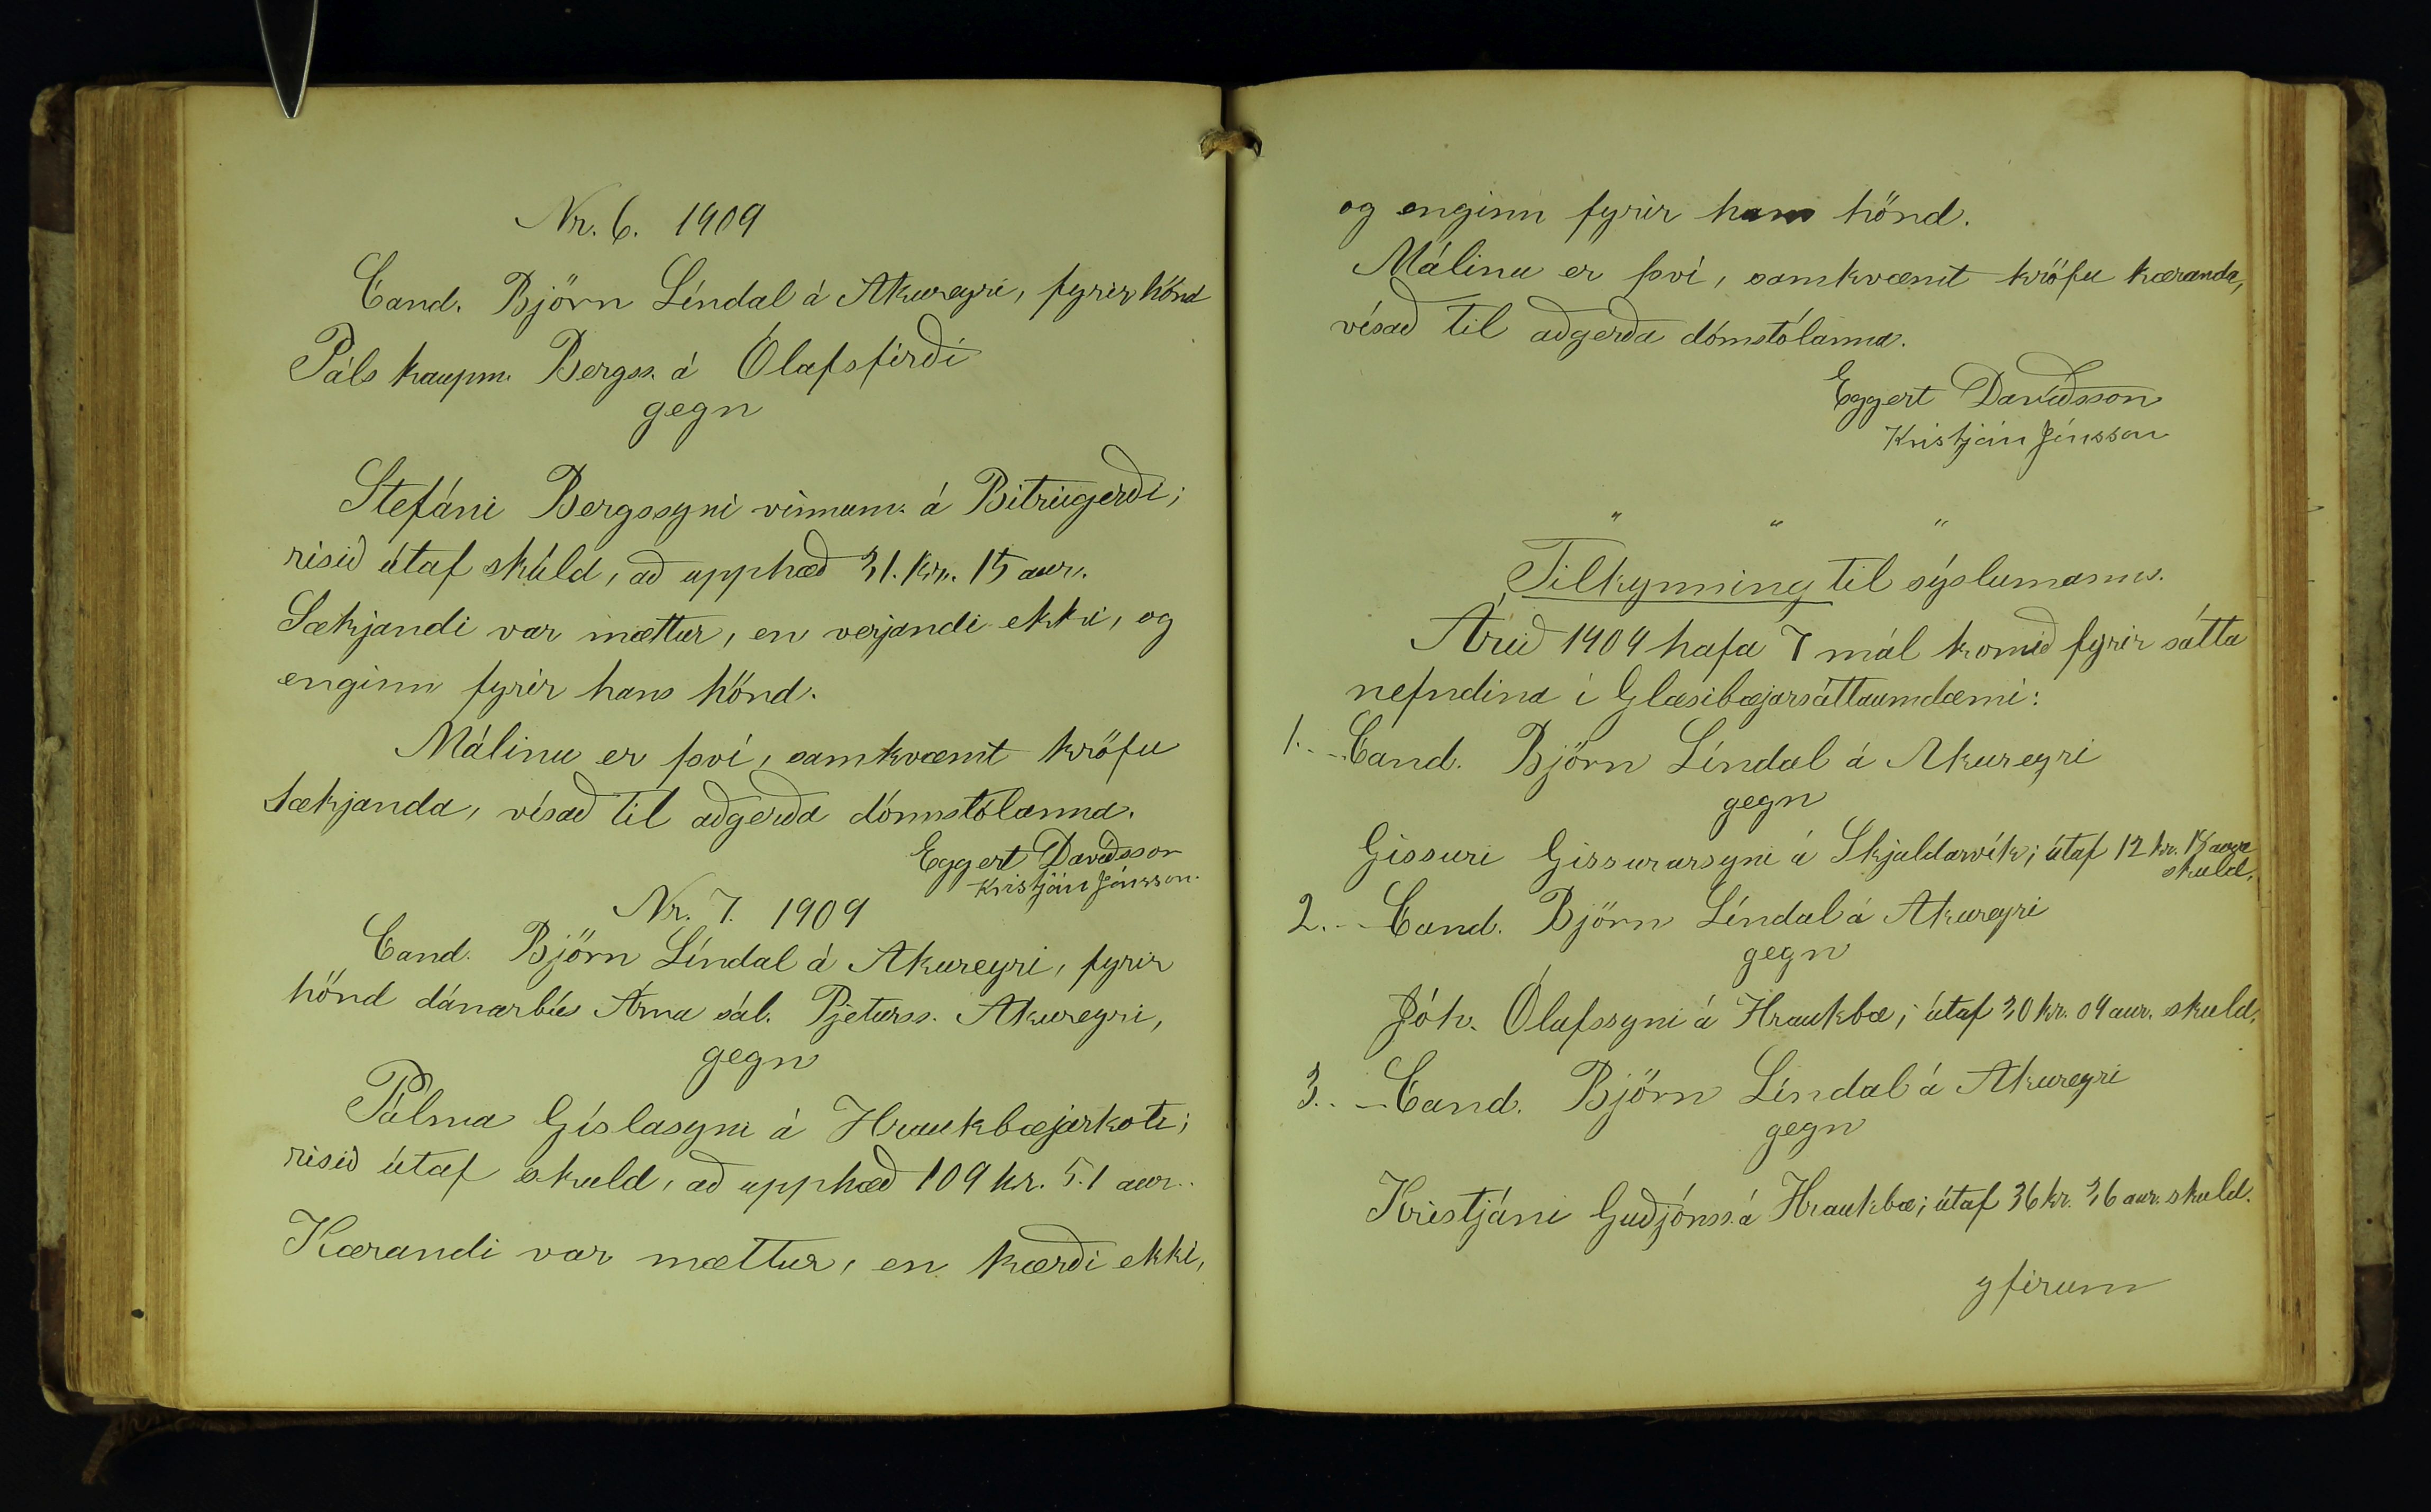 Nr. 6. 1909
Cand. Björn Líndal á Akureyri, fyrir hönd
Páls kaupm. Bergss. á Ólafsfirði
gegn
Stefáni Bergssyni vinnum. á Bitrugerði;
risið útaf skuld, að upphæð 31. kr. 15 aur.
Sækjandi var mættur, en verjandi ekki, og
enginn fyrir hans hönd.
Málinu er því, samkvæmt kröfu
sækjanda, vísað til aðgerða dómstólanna.
Eggert Davíðsson
Kristján Jónsson.
Nr. 7. 1909
Cand. Björn Líndal á Akureyri, fyrir
hönd dánarbús Árna sál. Pjeturss. Akureyri,
gegn
Pálma Gíslasyni á Hraukbæjarkoti;
risið útaf skuld, að upphæð 109 kr. 51 aur.
Kærandi var mættur, en kærði ekki,
og enginn fyrir hans hönd.
Málinu er því, samkvæmt kröfu kæranda,
vísað til aðgerða dómstólanna.
Eggert Davíðsson
Kristján Jónsson
" " "
Tilkynning til sýslumanns.
Árið 1909 hafa 7 mál komið fyrir sátta
nefndina í Glæsibæjarsáttaumdæmi:
1. - Cand. Björn Líndal á Akureyri
gegn
Gissuri Gissurarsyni á Skjaldarvík; útaf 12 kr. 18 aura
skuld.
2. - Cand. Björn Líndal á Akureyri
gegn
Jóh. Ólafssyni á Hraukbæ; útaf 30 kr. 09 aur. skuld.
3. - Cand. Björn Líndal á Akureyri
gegn
Kristjáni Guðjónss. á Hraukbæ; útaf 36 kr. 36 aur. skuld.
yfirum